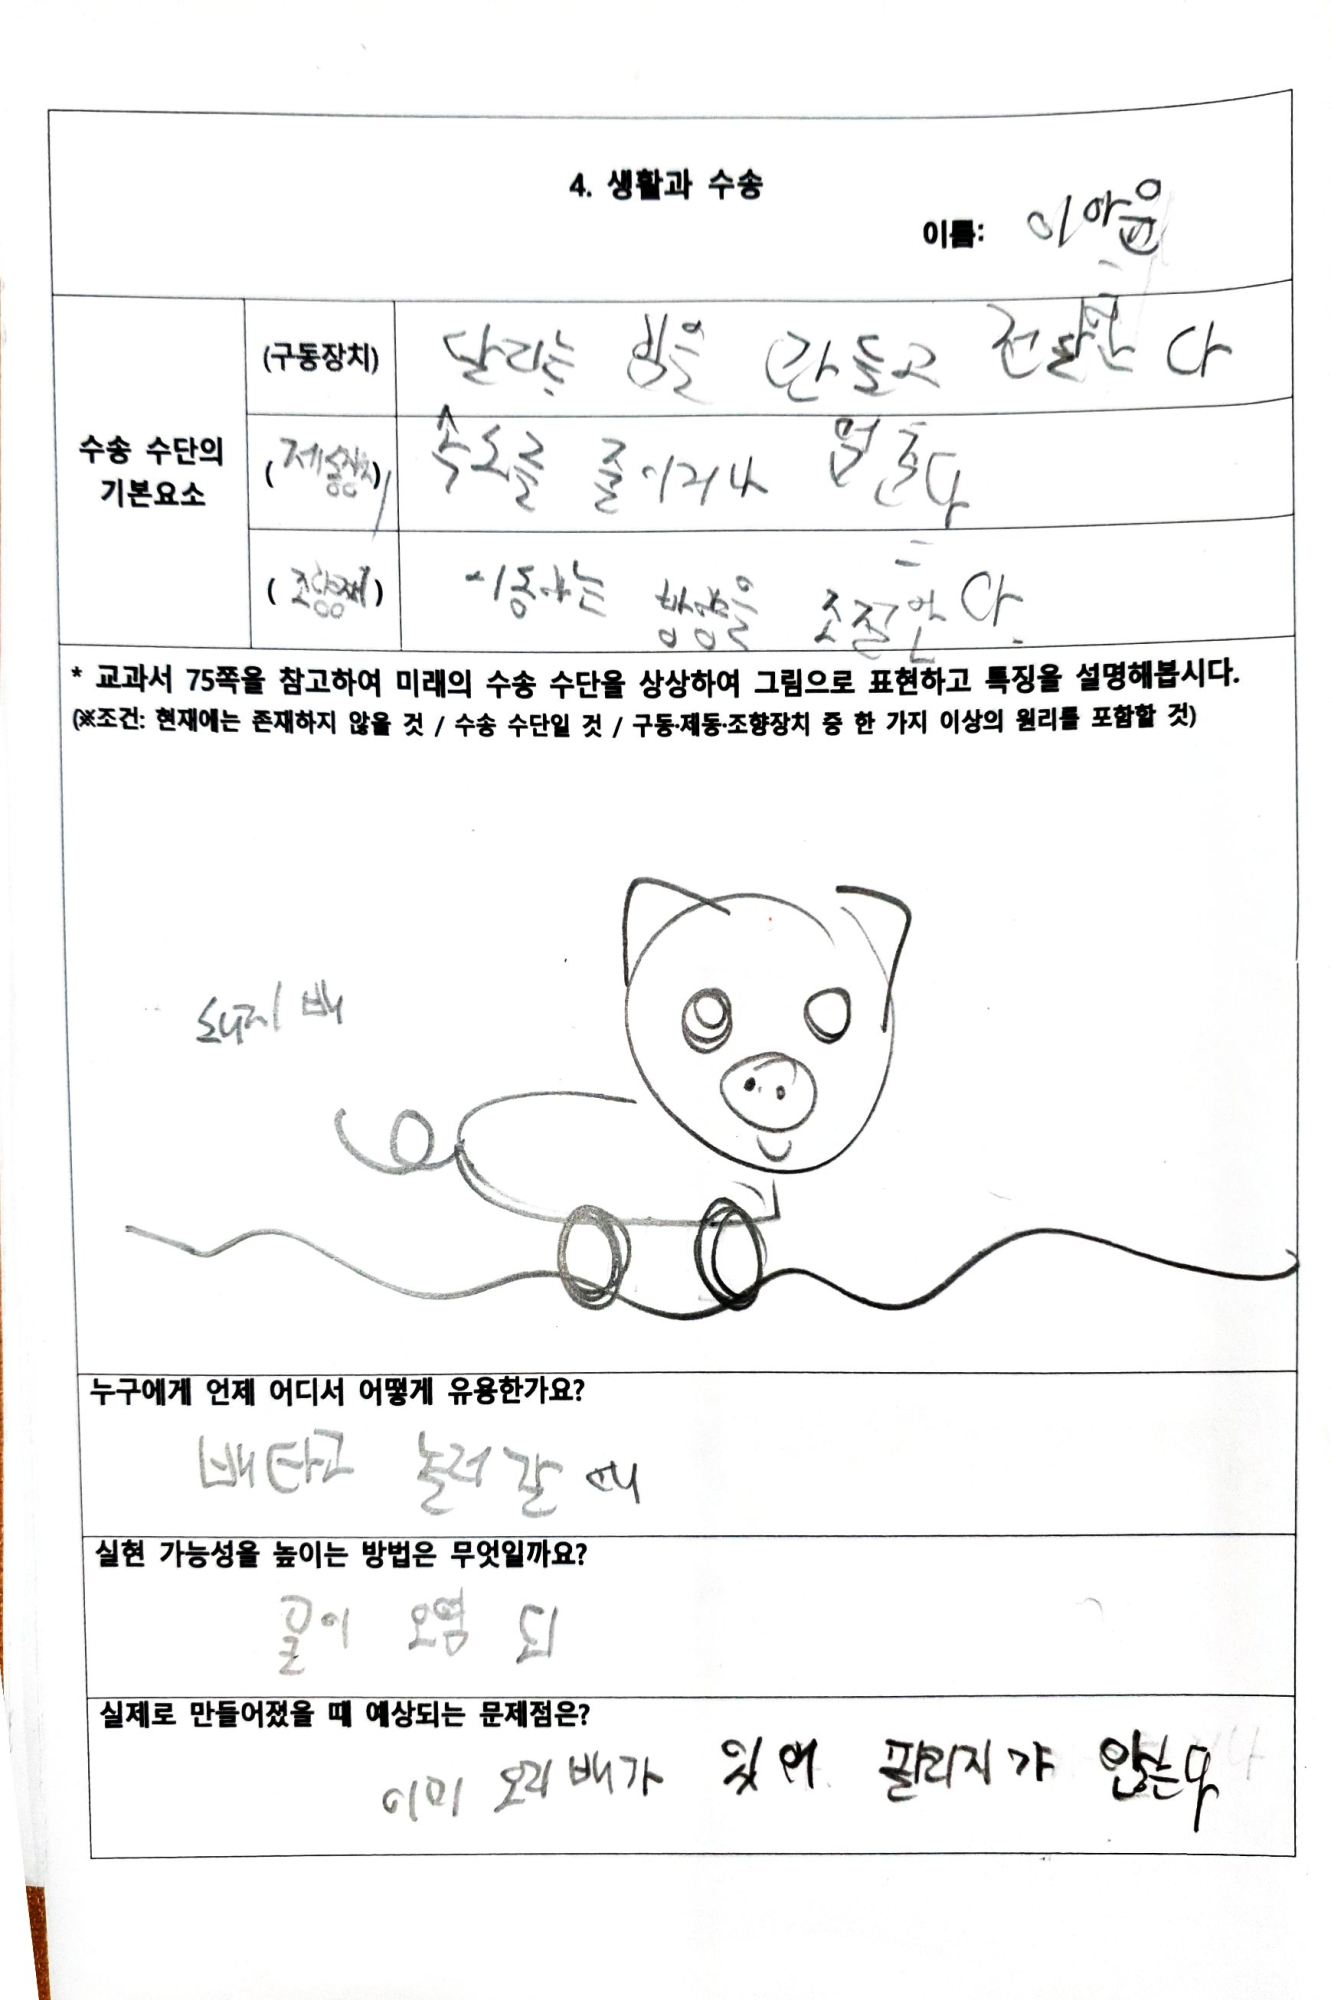 4. 생활과 수송
이름: 이아윤
수송 수단의
기본요소
(구동장치) 달리는 힘을 만들고 전달한다
(제동장치) 속도를 줄이거나 멈춘다
(조향장치) 이동하는 방향을 조절한다.
* 교과서 75쪽을 참고하여 미래의 수송 수단을 상상하여 그림으로 표현하고 특징을 설명해봅시다.
(※조건: 현재에는 존재하지 않을 것 / 수송 수단일 것 / 구동·제동·조향장치 중 한 가지 이상의 원리를 포함할 것)
돼지 배
누구에게 언제 어디서 어떻게 유용한가요?
배타고 놀러갈 때
실현 가능성을 높이는 방법은 무엇일까요?
물이 오염 되
실제로 만들어졌을 때 예상되는 문제점은?
이미 오리배가 있어 팔리지가 않는다